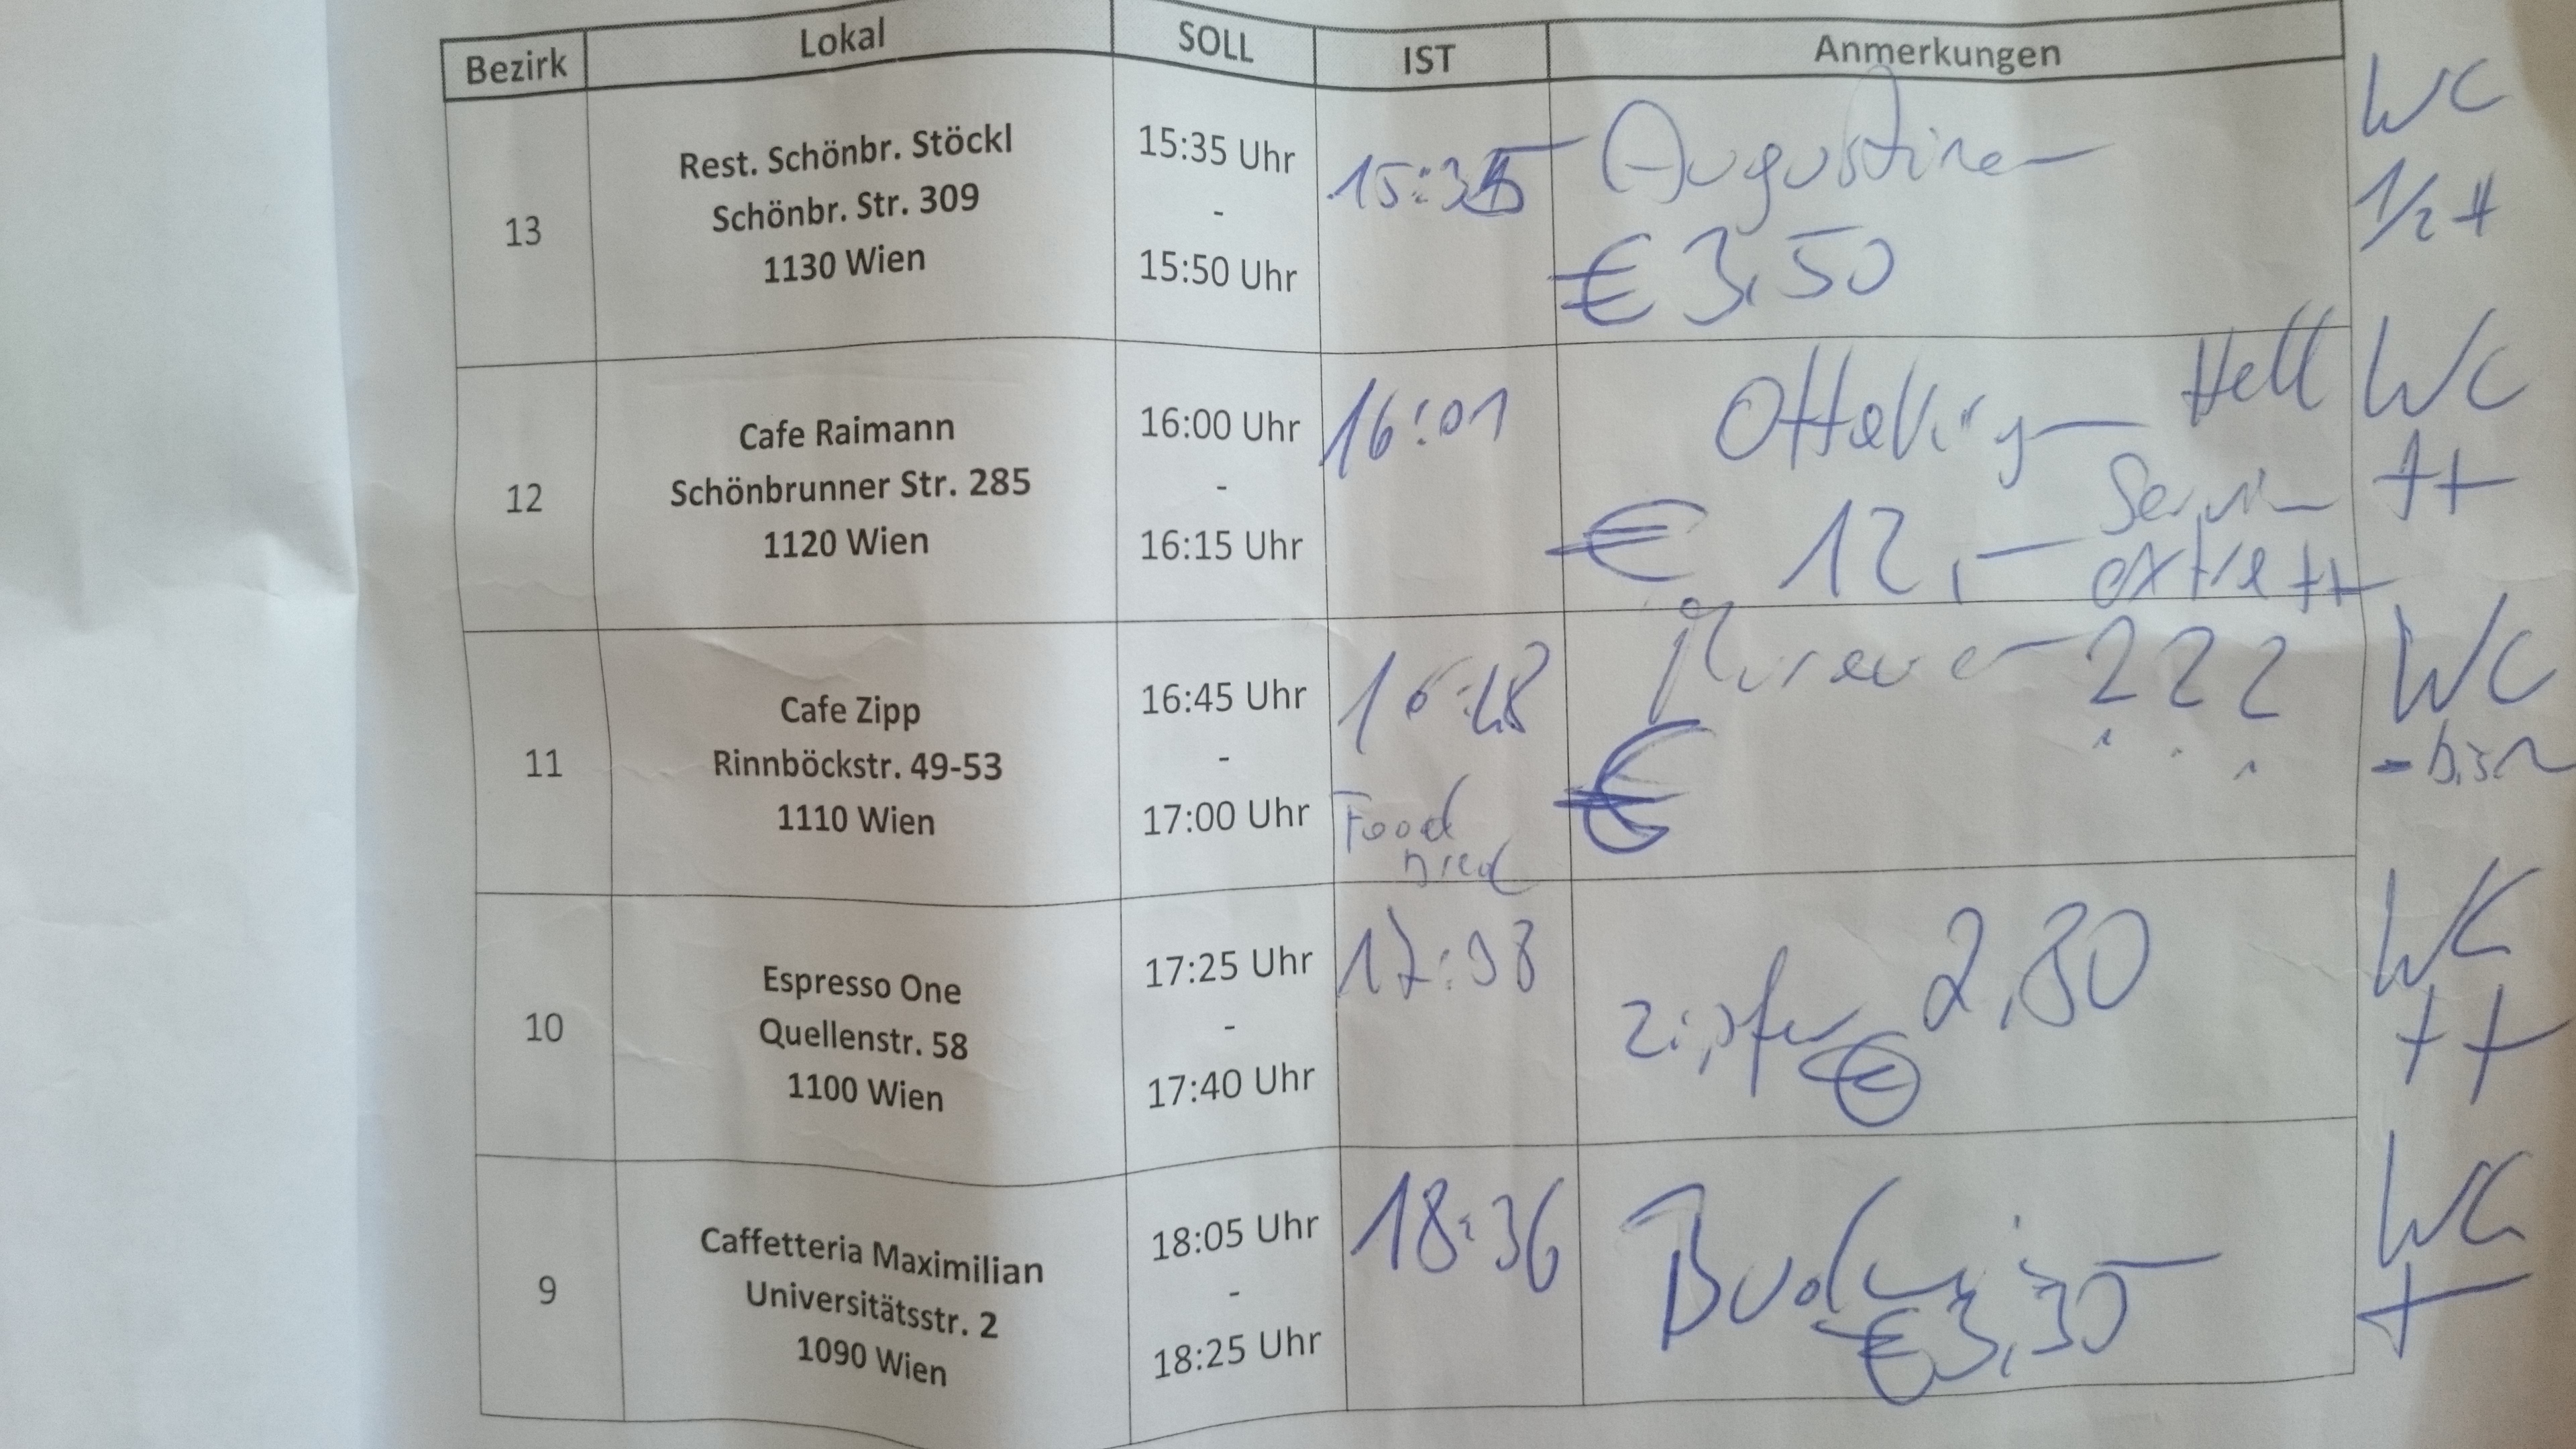 Bezirk Lokal SOLL IST Anmerkungen
13
Rest. Schönbr. Stöckl
Schönbr. Str. 309
1130 Wien
15:35 Uhr
-
15:50 Uhr
Augustiner
€ 3,50
WC
1/2 +
12
Cafe Raimann
Schönbrunner Str. 285
1120 Wien
16:00 Uhr
-
16:15 Uhr
16:01
Ottakringer Hell
€ 12,-
extra ++
WC
++
11
Cafe Zipp
Rinnböckstr. 49-53
1110 Wien
16:45 Uhr
-
17:00 Uhr
Food
???
€
WC
10
Espresso One
Quellenstr. 58
1100 Wien
17:25 Uhr
-
17:40 Uhr
17:38
Zipfer € 2,80
WC
++
9
Caffetteria Maximilian
Universitätsstr. 2
1090 Wien
18:05 Uhr
-
18:25 Uhr
18:36
€ 3,35
WC
+